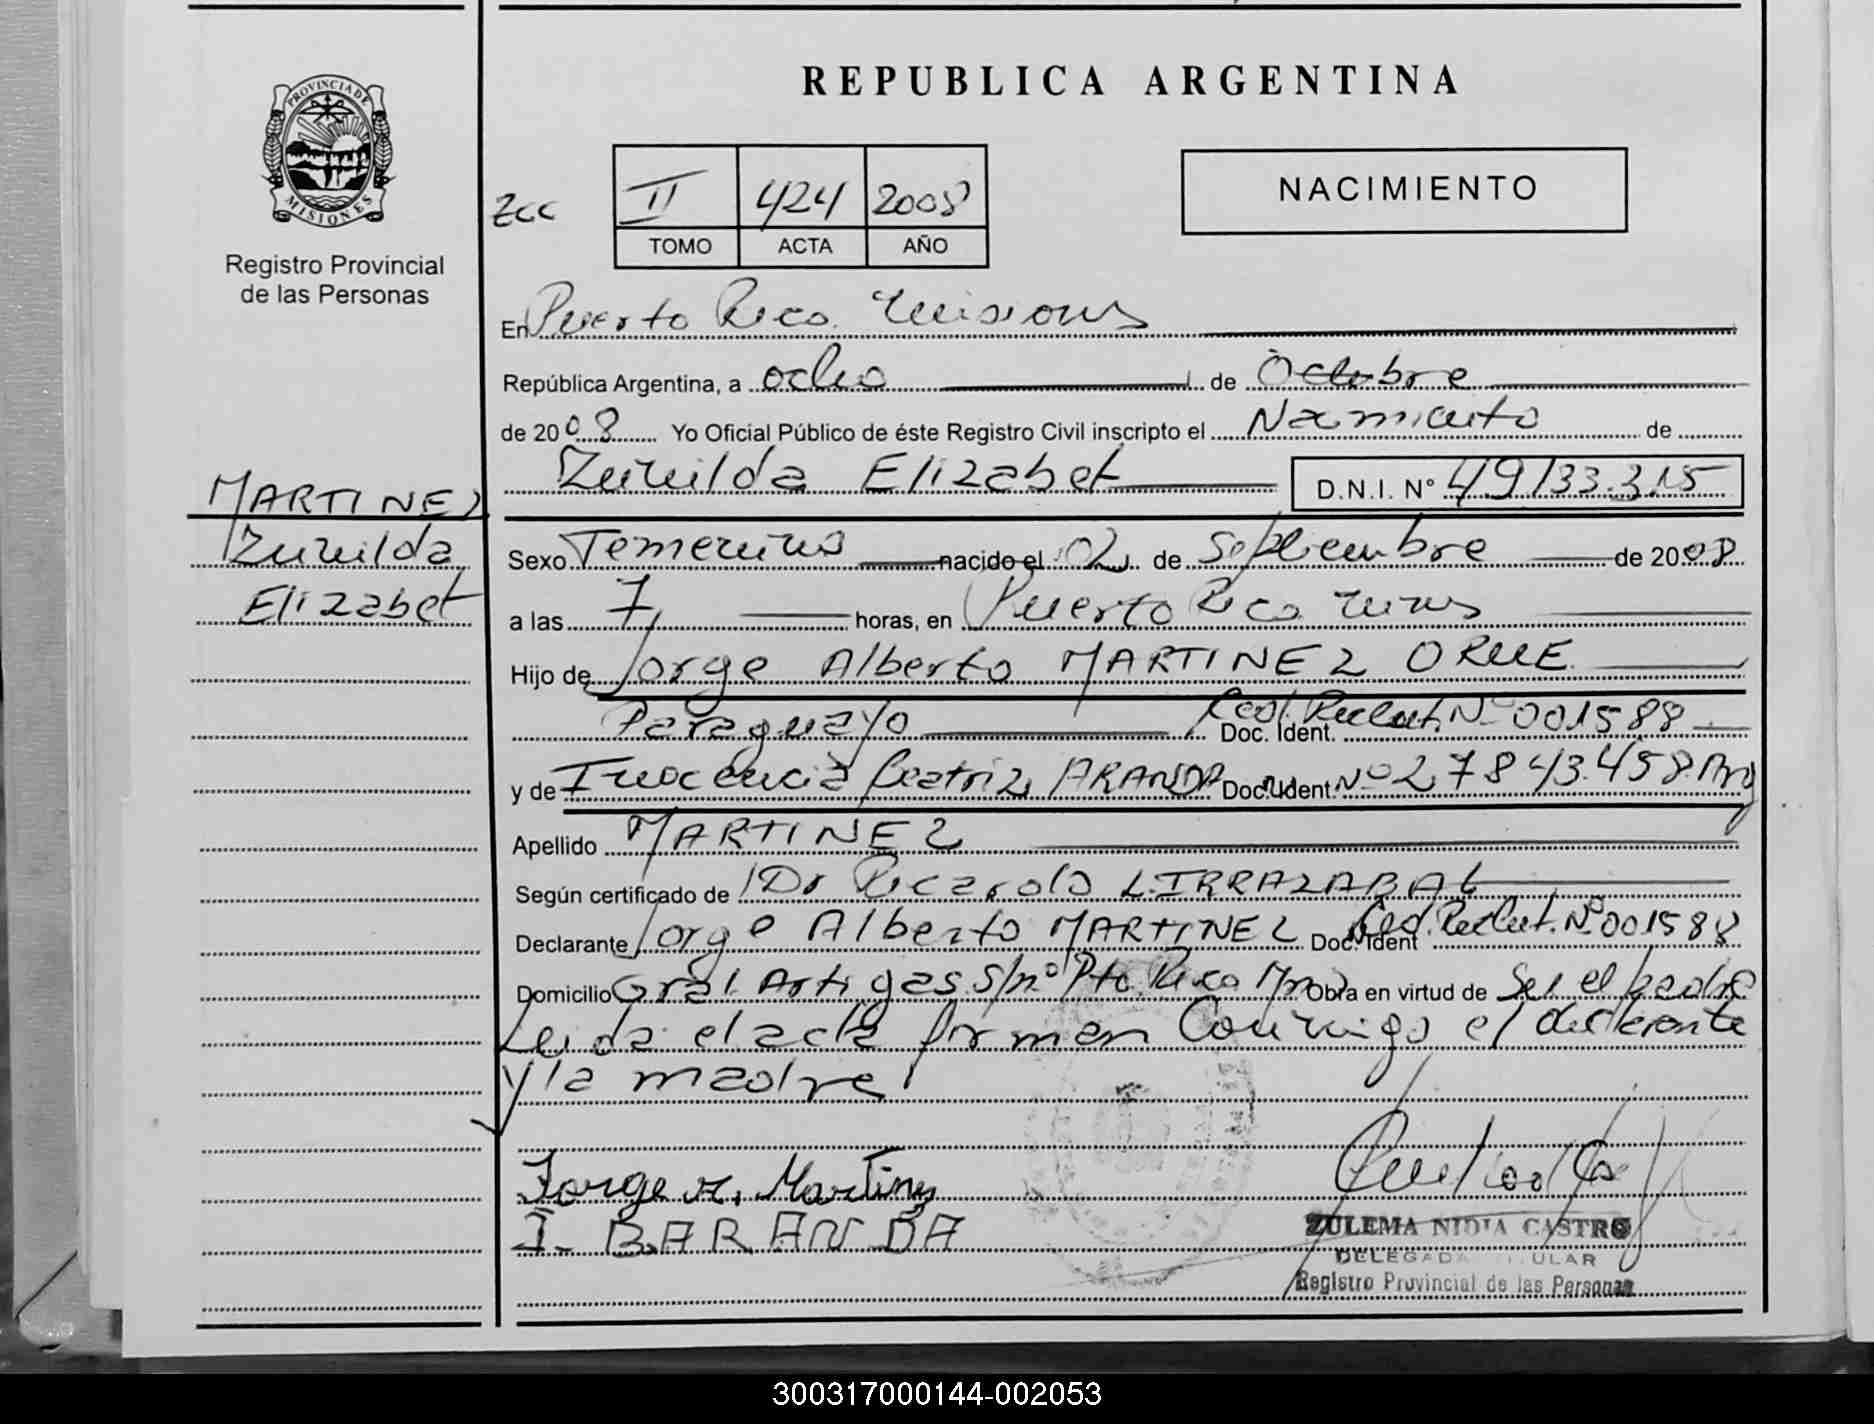 REPUBLICA ARGENTINA
PROVINCIA DE MISIONES
Registro Provincial
de las Personas
II 424 2008
TOMO ACTA AÑO
NACIMIENTO
En Puerto Rico Misiones
República Argentina, a ocho de Octubre
de 2008 Yo Oficial Público de éste Registro Civil inscripto el Nacimiento de
Zunilda Elizabet D.N.I. Nº 49133.315
MARTINEZ
Zunilda
Elizabet
Sexo Femenino nacido el 02 de Septiembre de 2008
a las 7, horas, en Puerto Rico
Hijo de Jorge Alberto MARTINEZ ORUE
Paraguayo Doc. Ident. Nº 001588
y de Inocencia Beatriz ARANDA Doc. Ident. Nº 27843.458
Apellido MARTINEZ
Según certificado de Dr Ricardo L. IRRAZABAL
Declarante Jorge Alberto MARTINEZ Doc. Ident Nº 001588
Domicilio Gral. Artigas S/nº Pto. Rico Mnes Obra en virtud de Ser el padre
Leida el acta firman Conmigo el declarante
y la madre
Jorge A. Martinez
I. B. ARANDA
ZULEMA NIDIA CASTRO
DELEGADA TITULAR
Registro Provincial de las Personas
300317000144-002053